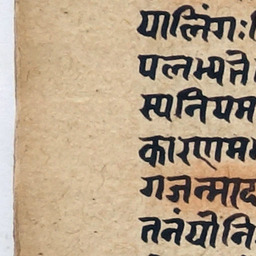 यालिंगः
पलभ्यते
स्यनियम
कारणम
गजन्माद
तनंयोनि